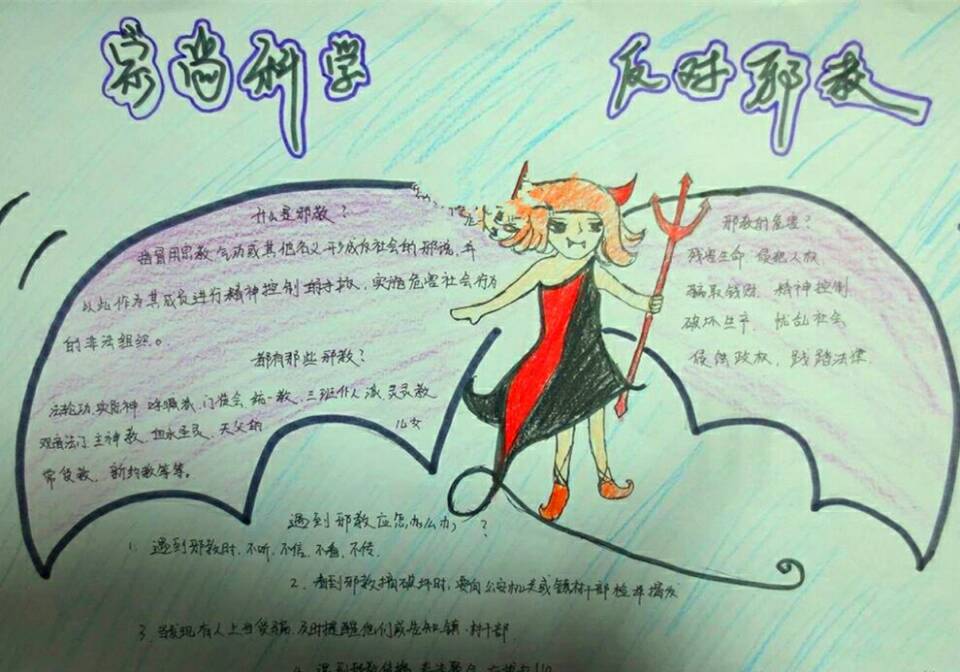 崇尚科学
反对邪教
什么是邪教？
指冒用宗教、气功或其他名义形成反社会的邪说,并
以此作为其成员进行精神控制的手段,实施危害社会行为
的非法组织。
都有那些邪教？
法轮功,实际神 呼喊派,门徒会,统一教,三班仆人派,灵灵教
观音法门,主神教,
天父的 儿女
新约教等等。
邪教的危害？
残害生命 侵犯人权
骗取钱财 精神控制
破坏生产 扰乱社会
侵蚀政权 践踏法律
遇到邪教应怎么办 ？
1. 遇到邪教时,不听,不信,不看,不传.
2. 看到邪教搞破坏时,要向公安机关或镇村干部检举揭发
3. 当发现有人上当受骗,及时提醒他们或告知镇、村干部